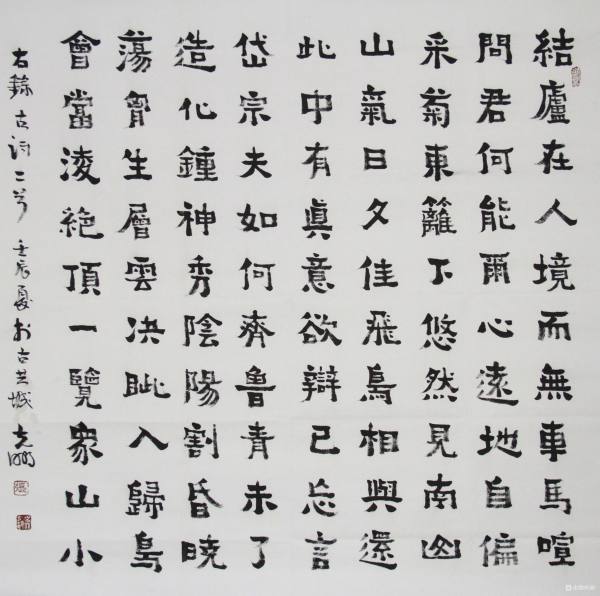 結廬在人境而無車馬喧
問君何能爾心遠地自偏
采菊東籬下悠然見南山
山氣日夕佳飛鳥相與還
此中有眞意欲辯已忘言
岱宗夫如何齊魯青未了
造化鍾神秀陰陽割昏曉
蕩胷生層雲决眦入歸鳥
會當淩絶頂一覽眾山小
右錄古詞二首 壬辰夏於古共城